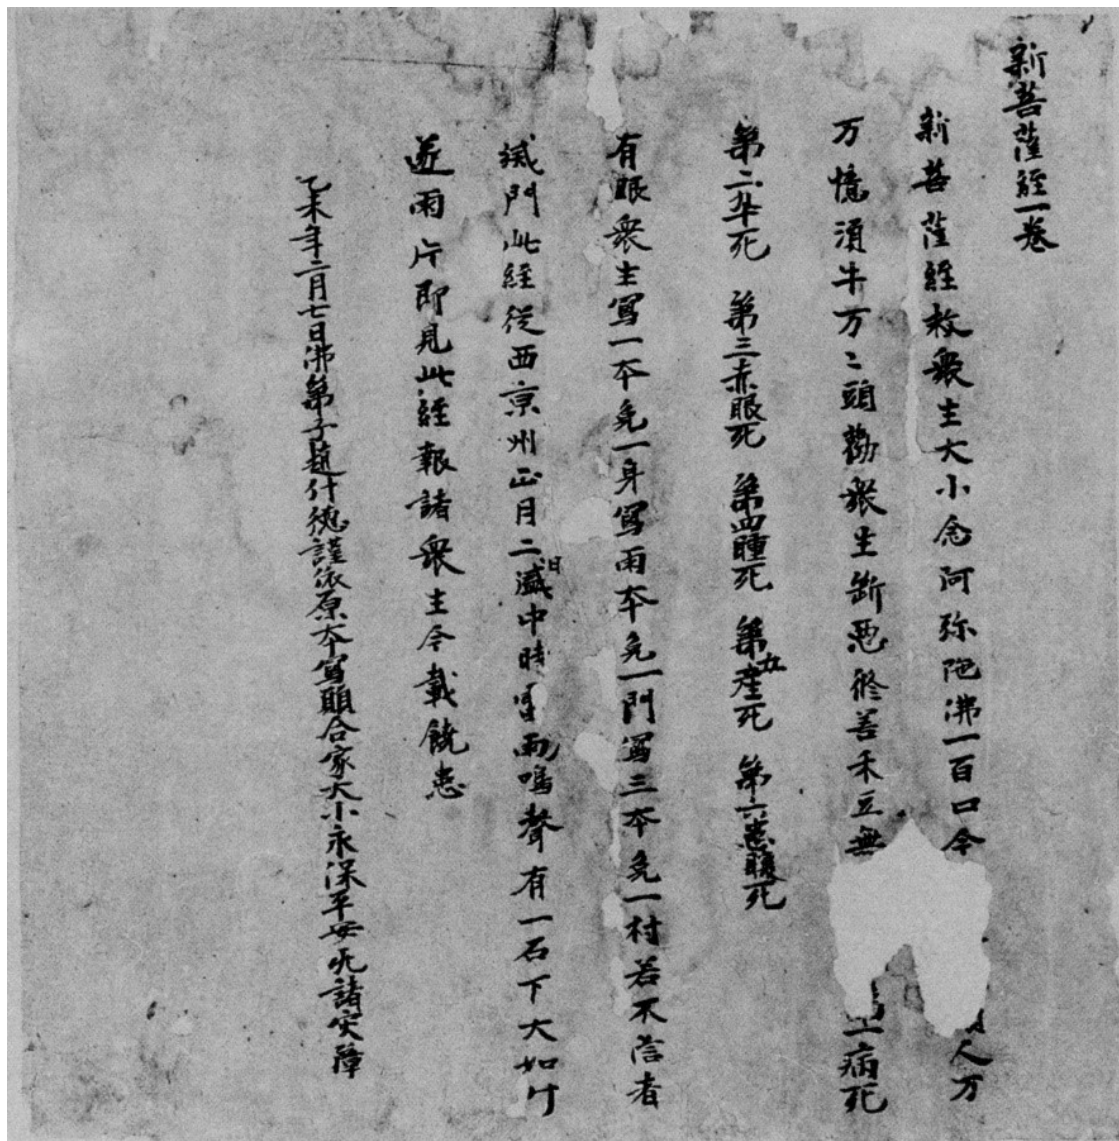 新菩薩經一卷
新菩薩經救衆生大小念阿弥陁佛一百口今人万
万憶須牛万〻頭勸衆生斷惡修善禾豆無一病死
第二卒死 第三赤眼死 第四腫死 第五産死 第六患腹死
有眼衆生寫一本免一身寫兩本免一門寫三本免一村若不信者
滅門此經從西京州正月二日盛中時雷雨鳴聲有一石下大如斗
遂兩片即見此經報諸衆生今載饒患
乙未年二月七日佛弟子趙什德謹依原本寫願合家大小永保平安无諸灾障